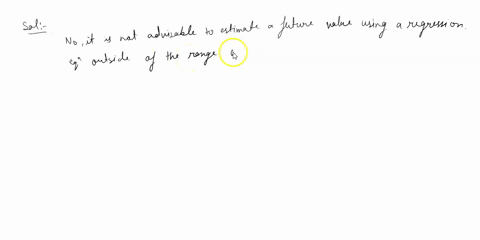 Sol:-
No, it is not advisable to estimate a future value using a regression.
eqⁿ outside of the range